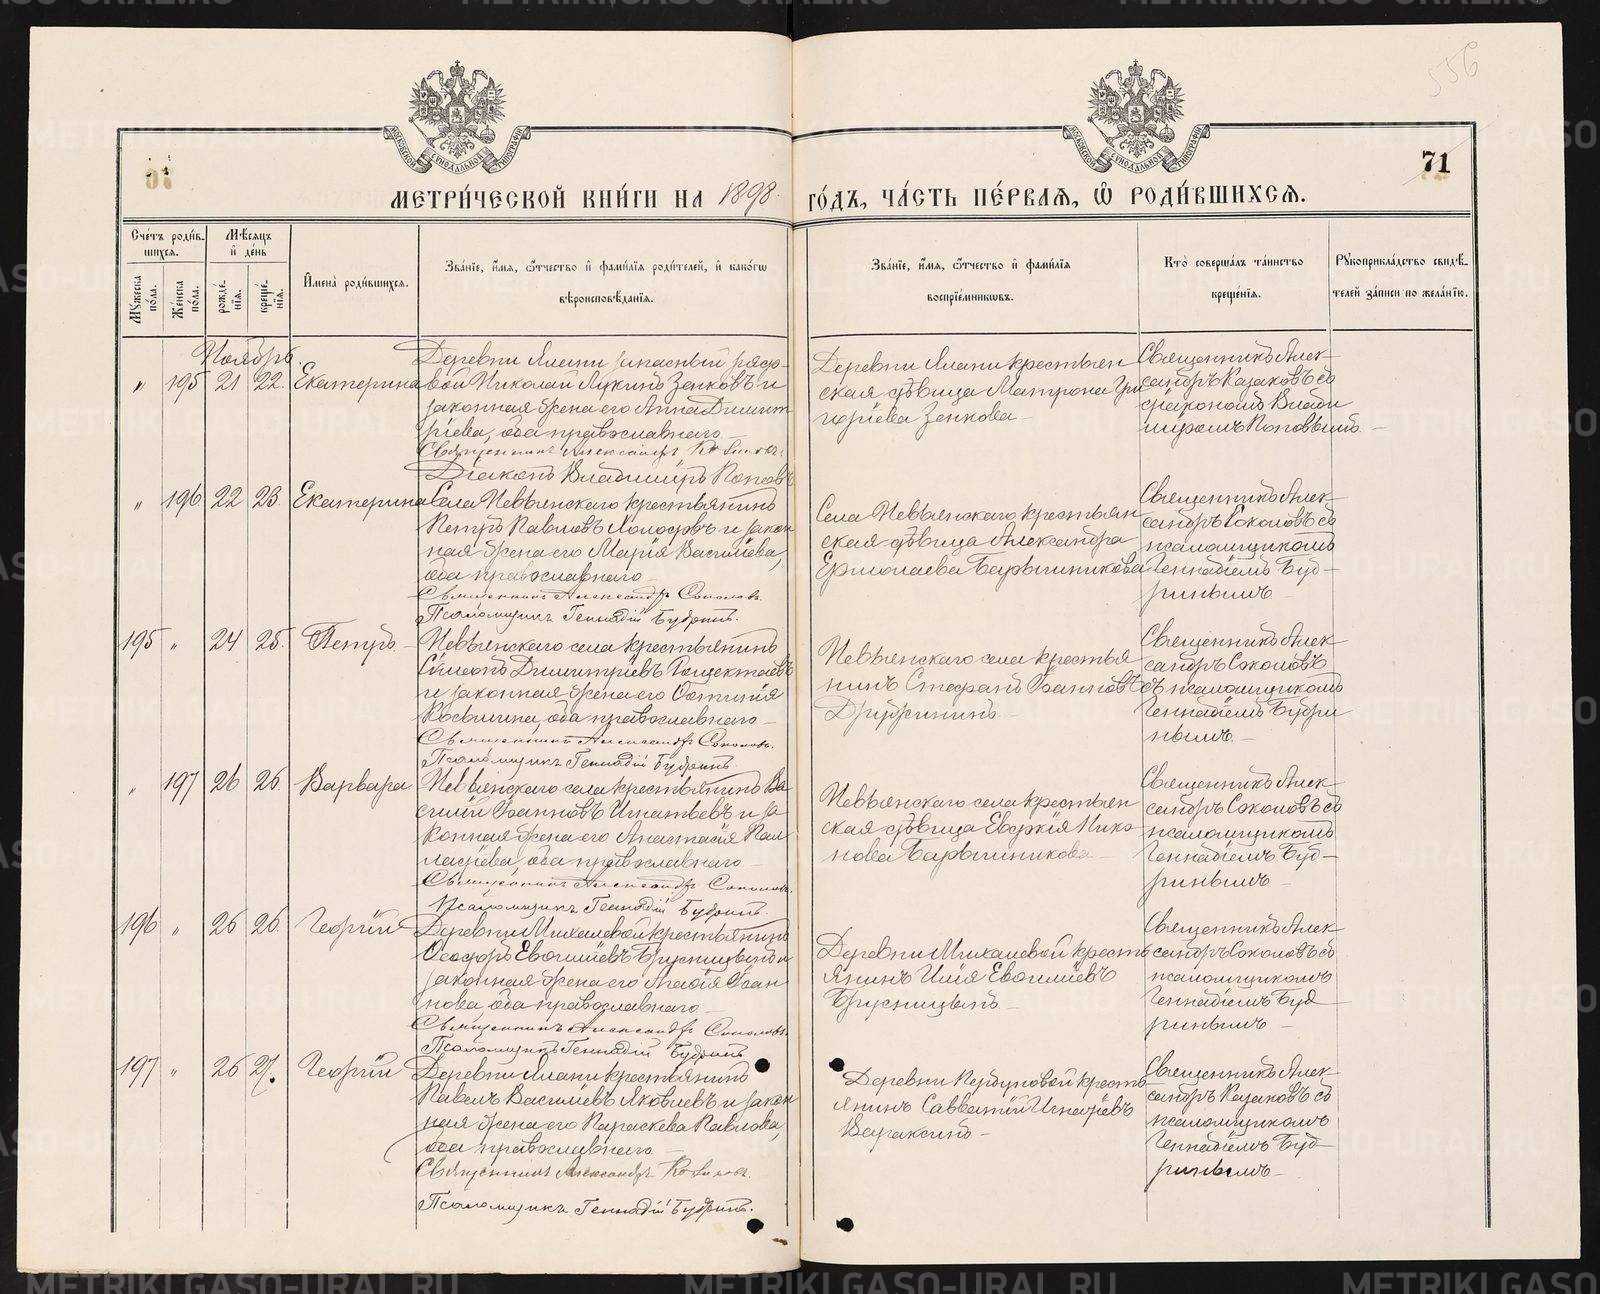 556
71
МЕТРИ́ЧЕСКОЙ КНИ́ГИ НА 1898 ГО́ДЪ, ЧА́СТЬ ПЕ́РВАѦ, Ѿ РОДИ́ВШИХСѦ.
Сче́тъ роди́в-
шихсѧ.
Мꙋжеска по́ла.
Же́нска по́ла.
Мѣ́сѧцъ
и҆ де́нь
рожде́-
нїѧ.
креще́-
нїѧ.
И҆мена̀ роди́вшихсѧ.
Зва́нїе, и҆́мѧ, ѻ҆́тчество и҆ фамѝлїѧ роди́телей, и҆ како́гѡ
вѣроисповѣ́данїѧ.
Зва́нїе, и҆́мѧ, ѻ҆́тчество и҆ фамѝлїѧ
воспрїе́мникѡвъ.
Кто̀ соверша́лъ та́инство
креще́нїѧ.
Рꙋкоприкла́дство свидѣ́-
телей за́писи по жела́нїю.
Ноябрь.
" 195 21 22. Екатерина
Деревни Ялани запасный рядо-
вой Николай Лукинъ Зенковъ и
законная жена его Анна Димит
ріева, оба православнаго
Священникъ Александръ Казаковъ
Діаконъ Владиміръ Поповъ
Деревни Ялани крестьян
ская дѣвица Матрона Гри
горіева Зенкова
Священникъ Алек-
сандръ Казаковъ съ
діакономъ Влади
міромъ Поповымъ
" 196 22 23. Екатерина
Села Невьянскаго крестьянинъ
Петръ Павловъ Холодовъ и закон
ная жена его Марія Васильева,
оба православнаго
Священникъ Александръ Соколовъ.
Псаломщикъ Геннадій Будринъ.
Села Невьянскаго крестьян
ская дѣвица Александра
Ермолаева Барышникова
Священникъ Алек-
сандръ Соколовъ съ
псаломщикомъ
Геннадіемъ Буд-
ринымъ
195 " 24 25. Петръ
Невьянскаго села крестьянинъ
Симеонъ Димитріевъ Пощектаевъ
и законная жена его Фотинія
Косьмина, оба православнаго
Священникъ Александръ Соколовъ.
Псаломщикъ Геннадій Будринъ
Невьянскаго села крестья
нинъ Стефанъ Іоанновъ
Дружининъ
Священникъ Алек
сандръ Соколовъ
съ псаломщикомъ
Геннадіемъ Будри
нымъ
" 197 26 26. Варвара
Невьянскаго села крестьянинъ Ва
силій Іоанновъ Игнатьевъ и за
конная жена его Анастасія Пал
ладіева, оба православнаго
Священникъ Александръ Соколовъ.
Псаломщикъ Геннадій Будринъ.
Невьянскаго села крестьян
ская дѣвица Евдокія Нико
нова Барышникова
Священникъ Алек-
сандръ Соколовъ съ
псаломщикомъ
Геннадіемъ Буд-
ринымъ
196 " 26 26. Георгій
Деревни Михалевой крестьянинъ
Ѳеодоръ Евѳиміевъ Брусницынъ и
законная жена его Агаѳія Іоан
нова, оба православнаго
Священникъ Александръ Соколовъ.
Псаломщикъ Геннадій Будринъ
Деревни Михалевой кресть
янинъ Илія Евѳиміевъ
Брусницынъ
Священникъ Алек
сандръ Соколовъ съ
псаломщикомъ
Геннадіемъ Буд
ринымъ
197 " 26 27. Георгій
Деревни Ялани крестьянинъ
Павелъ Васильевъ Яковлевъ и закон
ная жена его Параскева Павлова,
оба православнаго
Священникъ Александръ Казаковъ.
Псаломщикъ Геннадій Будринъ.
Деревни Кербуновой кресть
янинъ Савватій Игнатіевъ
Вараксинъ
Священникъ Алек-
сандръ Казаковъ съ
псаломщикомъ
Геннадіемъ Буд-
ринымъ
METRIKI.GASO-URAL.RU